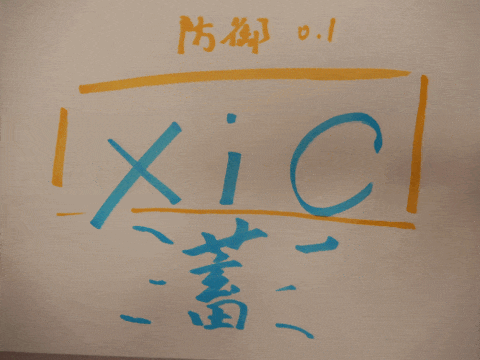 防御 0.1
XiC
蓄